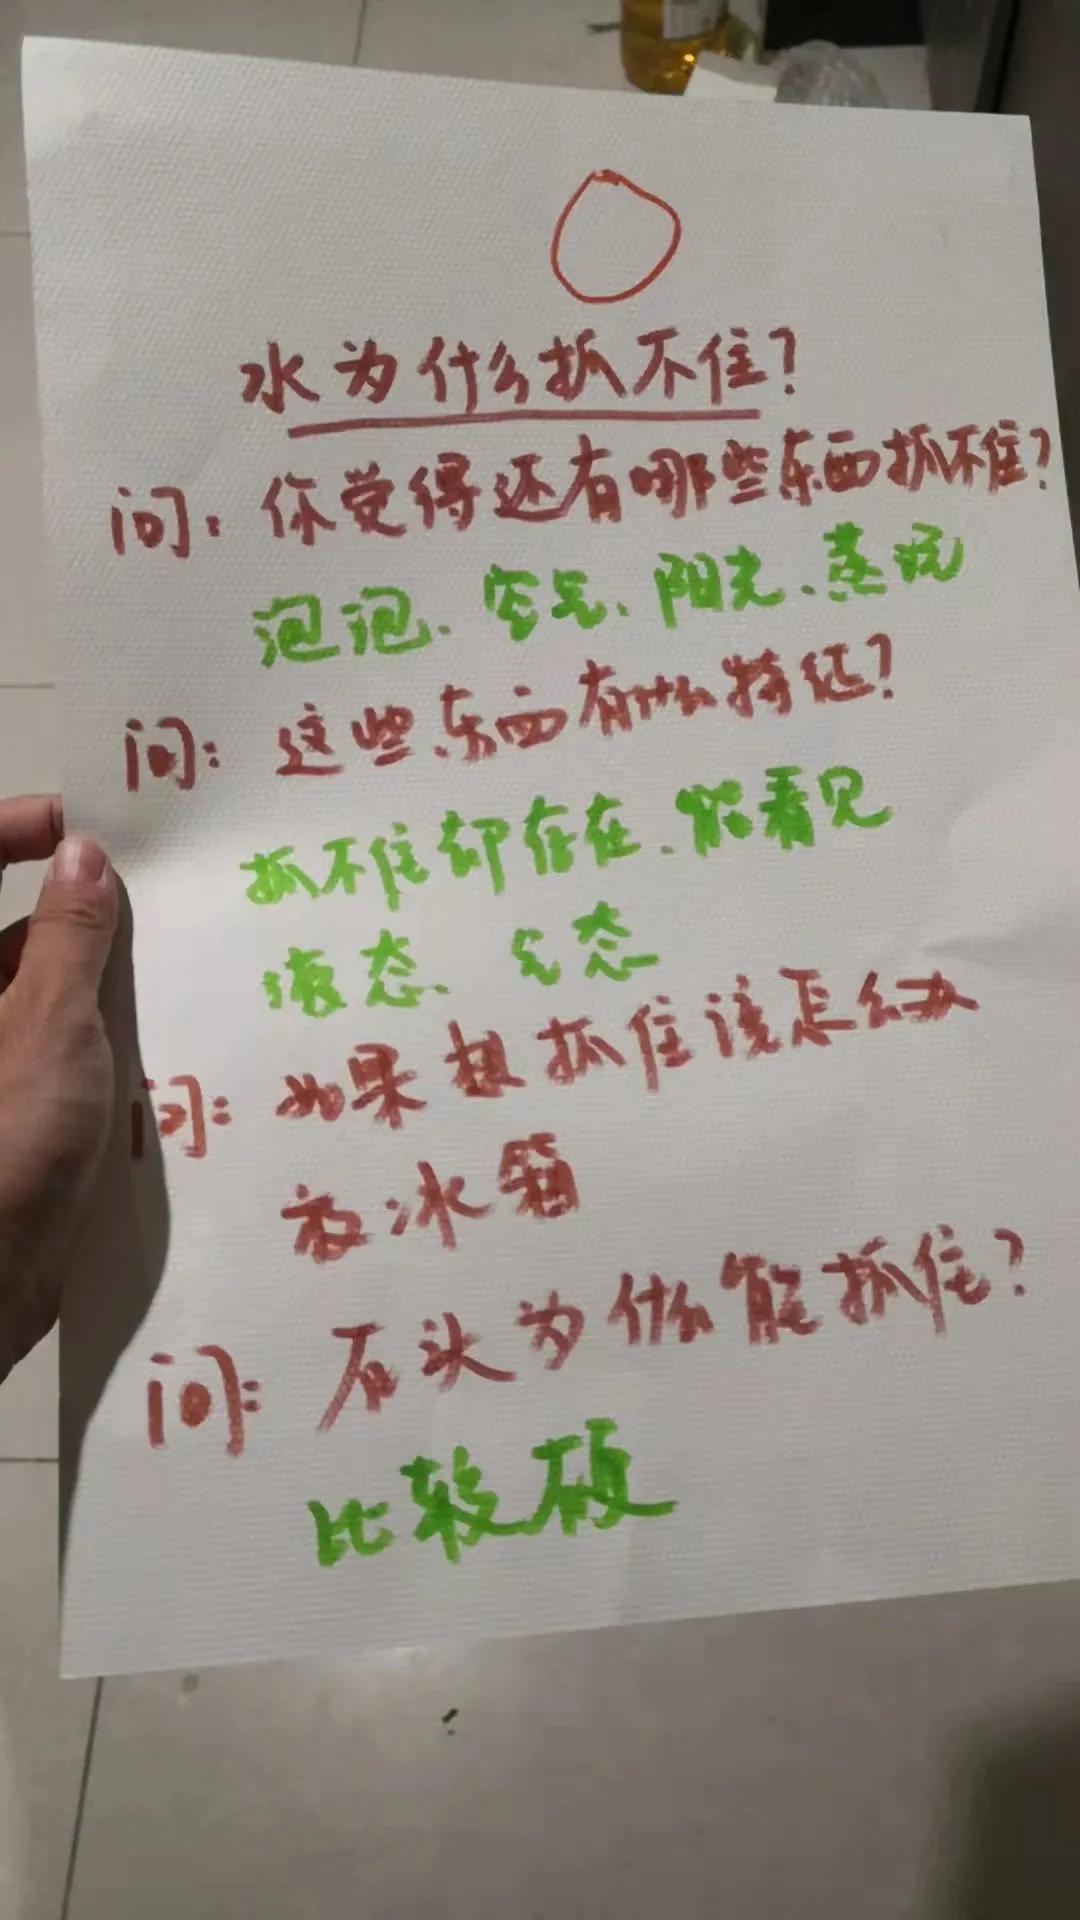 水为什么抓不住?
问:你觉得还有哪些东西抓不住?
泡泡、空气、阳光、蒸汽
问:这些东西有什么特征?
抓不住却存在、能看见
液态、气态
问:如果想抓住该怎么办
放冰箱
问:石头为什么能抓住?
比较硬